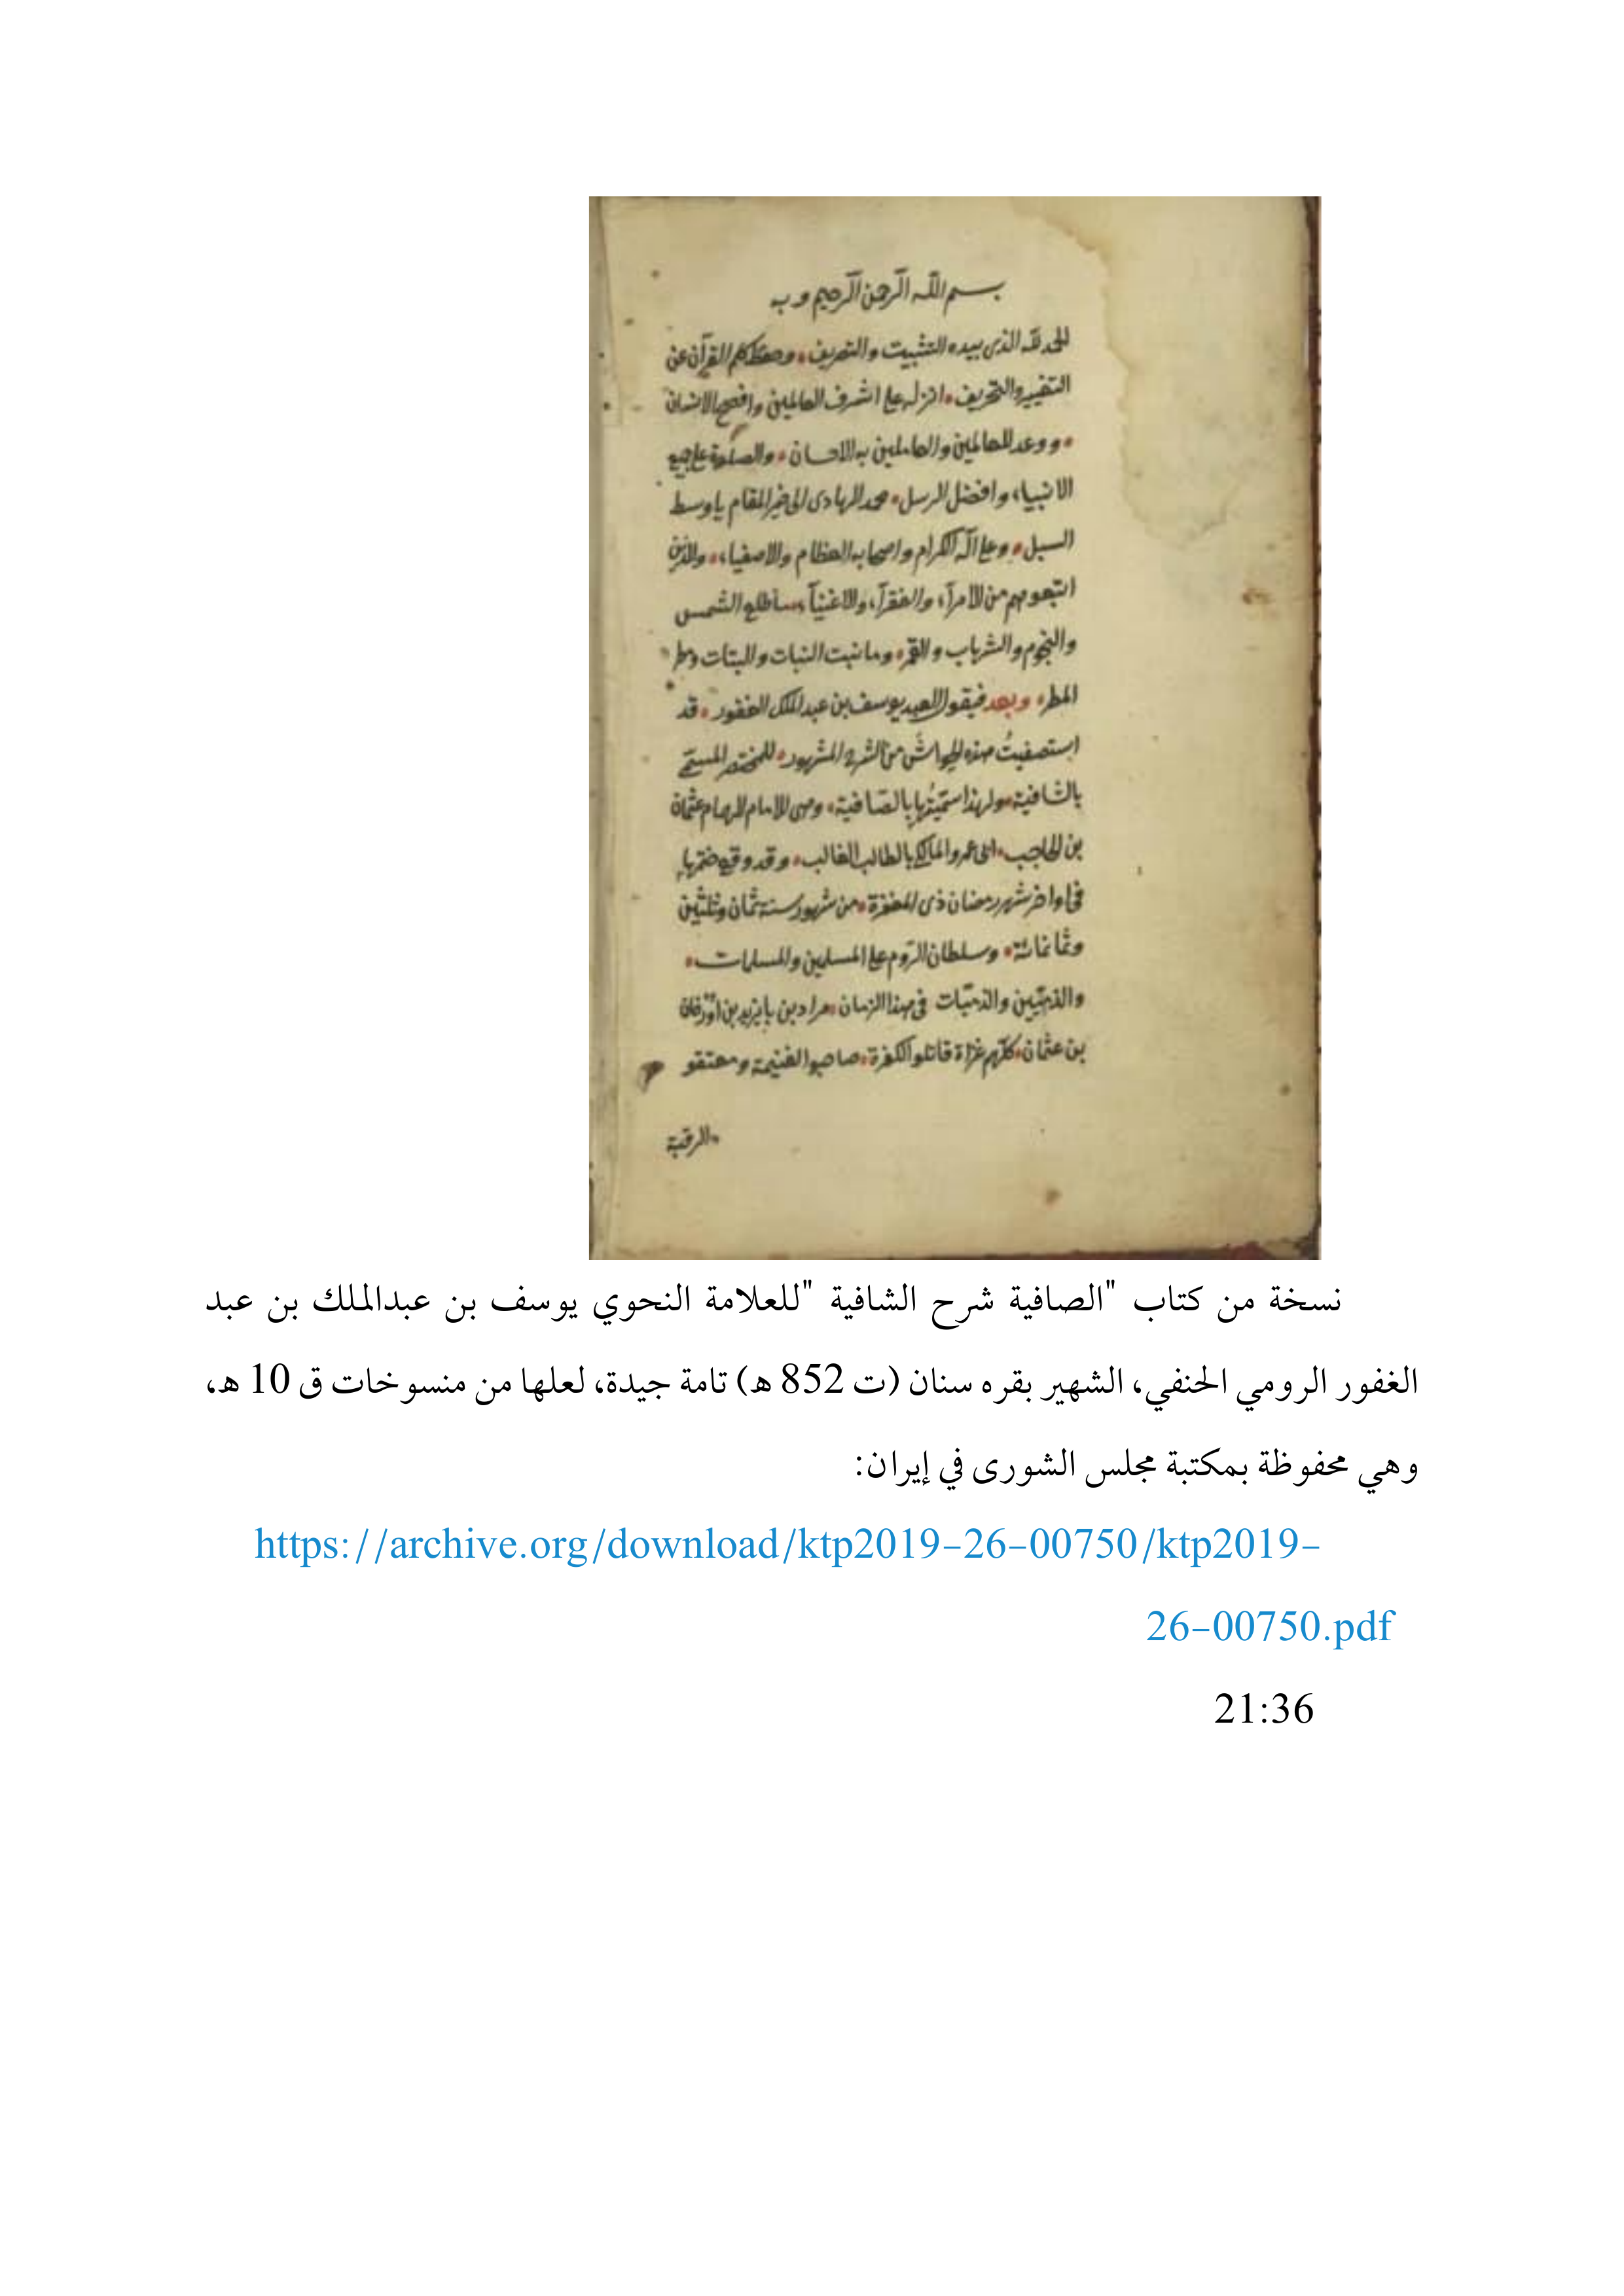 بسم الله الرحمن الرحيم وبه
الحمد لله الذى بيده التثبيت والتصريف وحفظ كلم القرآن عن
التغيير والتحريف انزله على اشرف العالمين وافصح الانسان
ووعد للعالمين والعاملين به الاحسان والصلوة على جميع
الانبياء وافضل الرسل محمد الهادى الى خير المقام باوسط
السبل وعلى آله الكرام واصحابه العظام والاصفياء والذين
اتبعوهم من الامرآء والفقرآء والاغنيآء ما طلع الشمس
والنجوم والشهاب والقمر وما نبت النبات
المطر وبعد فيقول العبد يوسف بن عبد الملك الغفور قد
استصفيت هذه الحواشى من الشرح المشهور للمختصر المسمى
بالشافية ولهذا سميتها بالصافية وهى للامام الهمام عثمان
بن الحاجب ابى عمرو المالكى بالطالب الغالب وقد وقع ختمها
فى اواخر شهر رمضان ذى المغفرة من شهور سنة ثمان وثلثين
وثمانمائة وسلطان الروم على المسلمين والمسلمات
والذميين والذميات فى هذا الزمان مراد بن بايزيد بن اورخان
بن عثمان كلهم غزاة قاتلوا الكفرة صاحبوا الغنيمة ومعتقو
الرقبة
نسخة من كتاب "الصافية شرح الشافية "للعلامة النحوي يوسف بن عبدالملك بن عبد
الغفور الرومي الحنفي، الشهير بقره سنان (ت 852 ه) تامة جيدة، لعلها من منسوخات ق 10 ه،
وهي محفوظة بمكتبة مجلس الشورى في إيران:
https://archive.org/download/ktp2019-26-00750/ktp2019-
26-00750.pdf
21:36